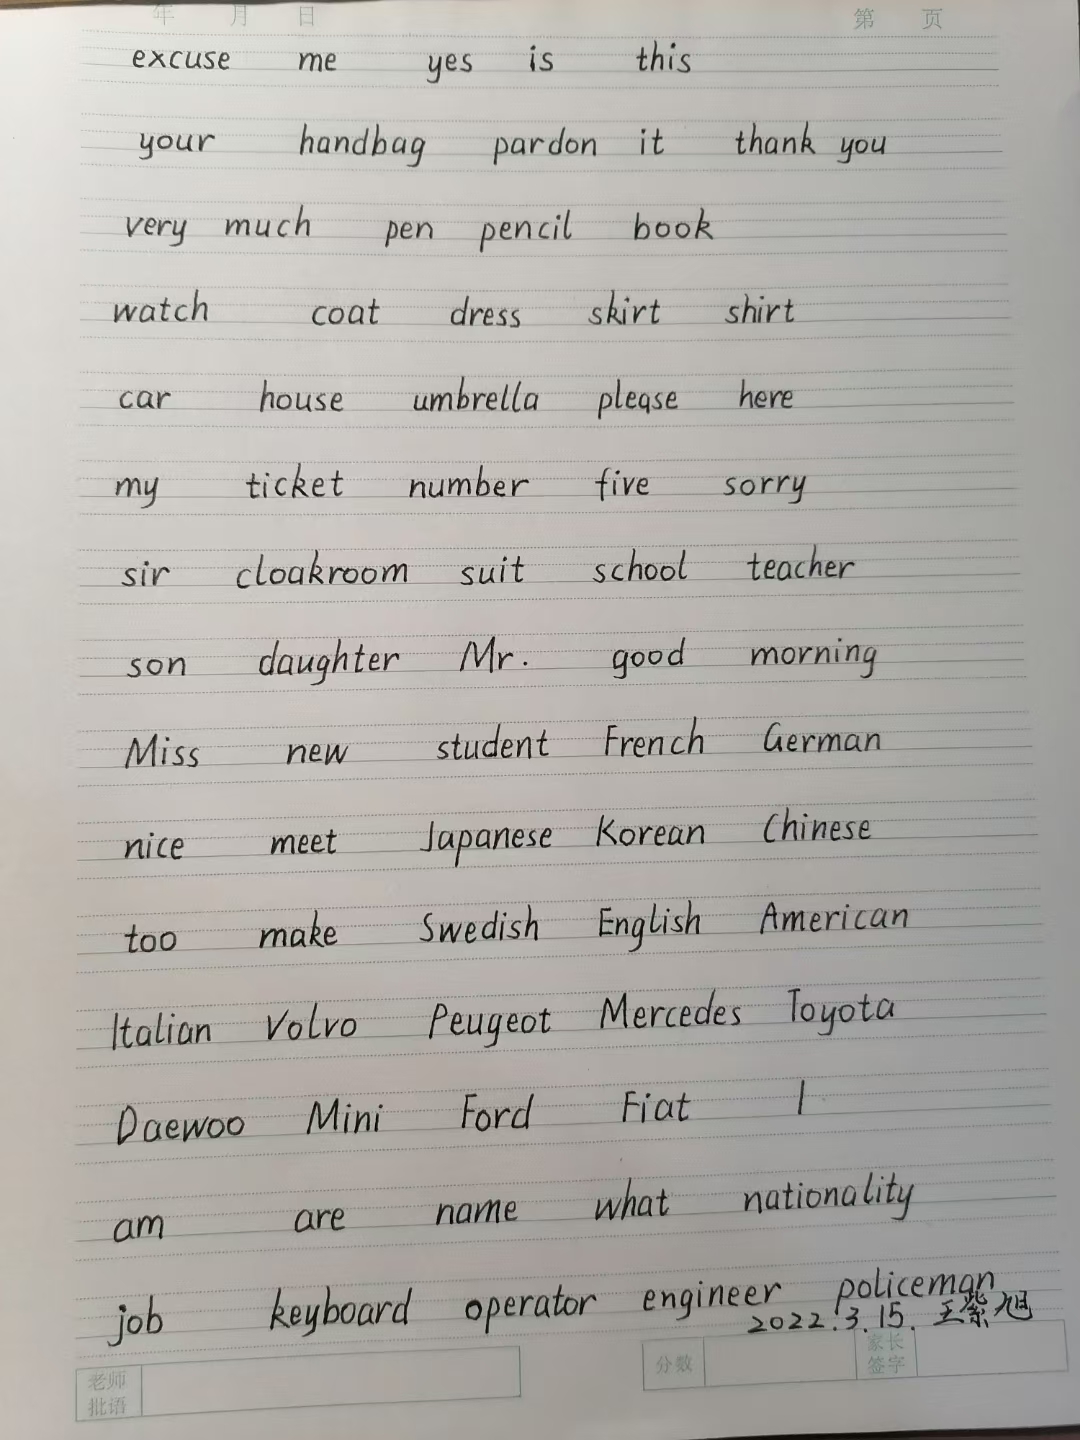 年 月 日 第 页
excuse me yes is this
your handbag pardon it thank you
very much pen pencil book
watch coat dress skirt shirt
car house umbrella please here
my ticket number five sorry
sir cloakroom suit school teacher
son daughter Mr. good morning
Miss new student French German
nice meet Japanese Korean Chinese
too make Swedish English American
Italian Volvo Peugeot Mercedes Toyota
Daewoo Mini Ford Fiat I
am are name what nationality
job keyboard operator engineer policeman
2022.3.15. 王紫旭
老师 分数 家长
批语 签字